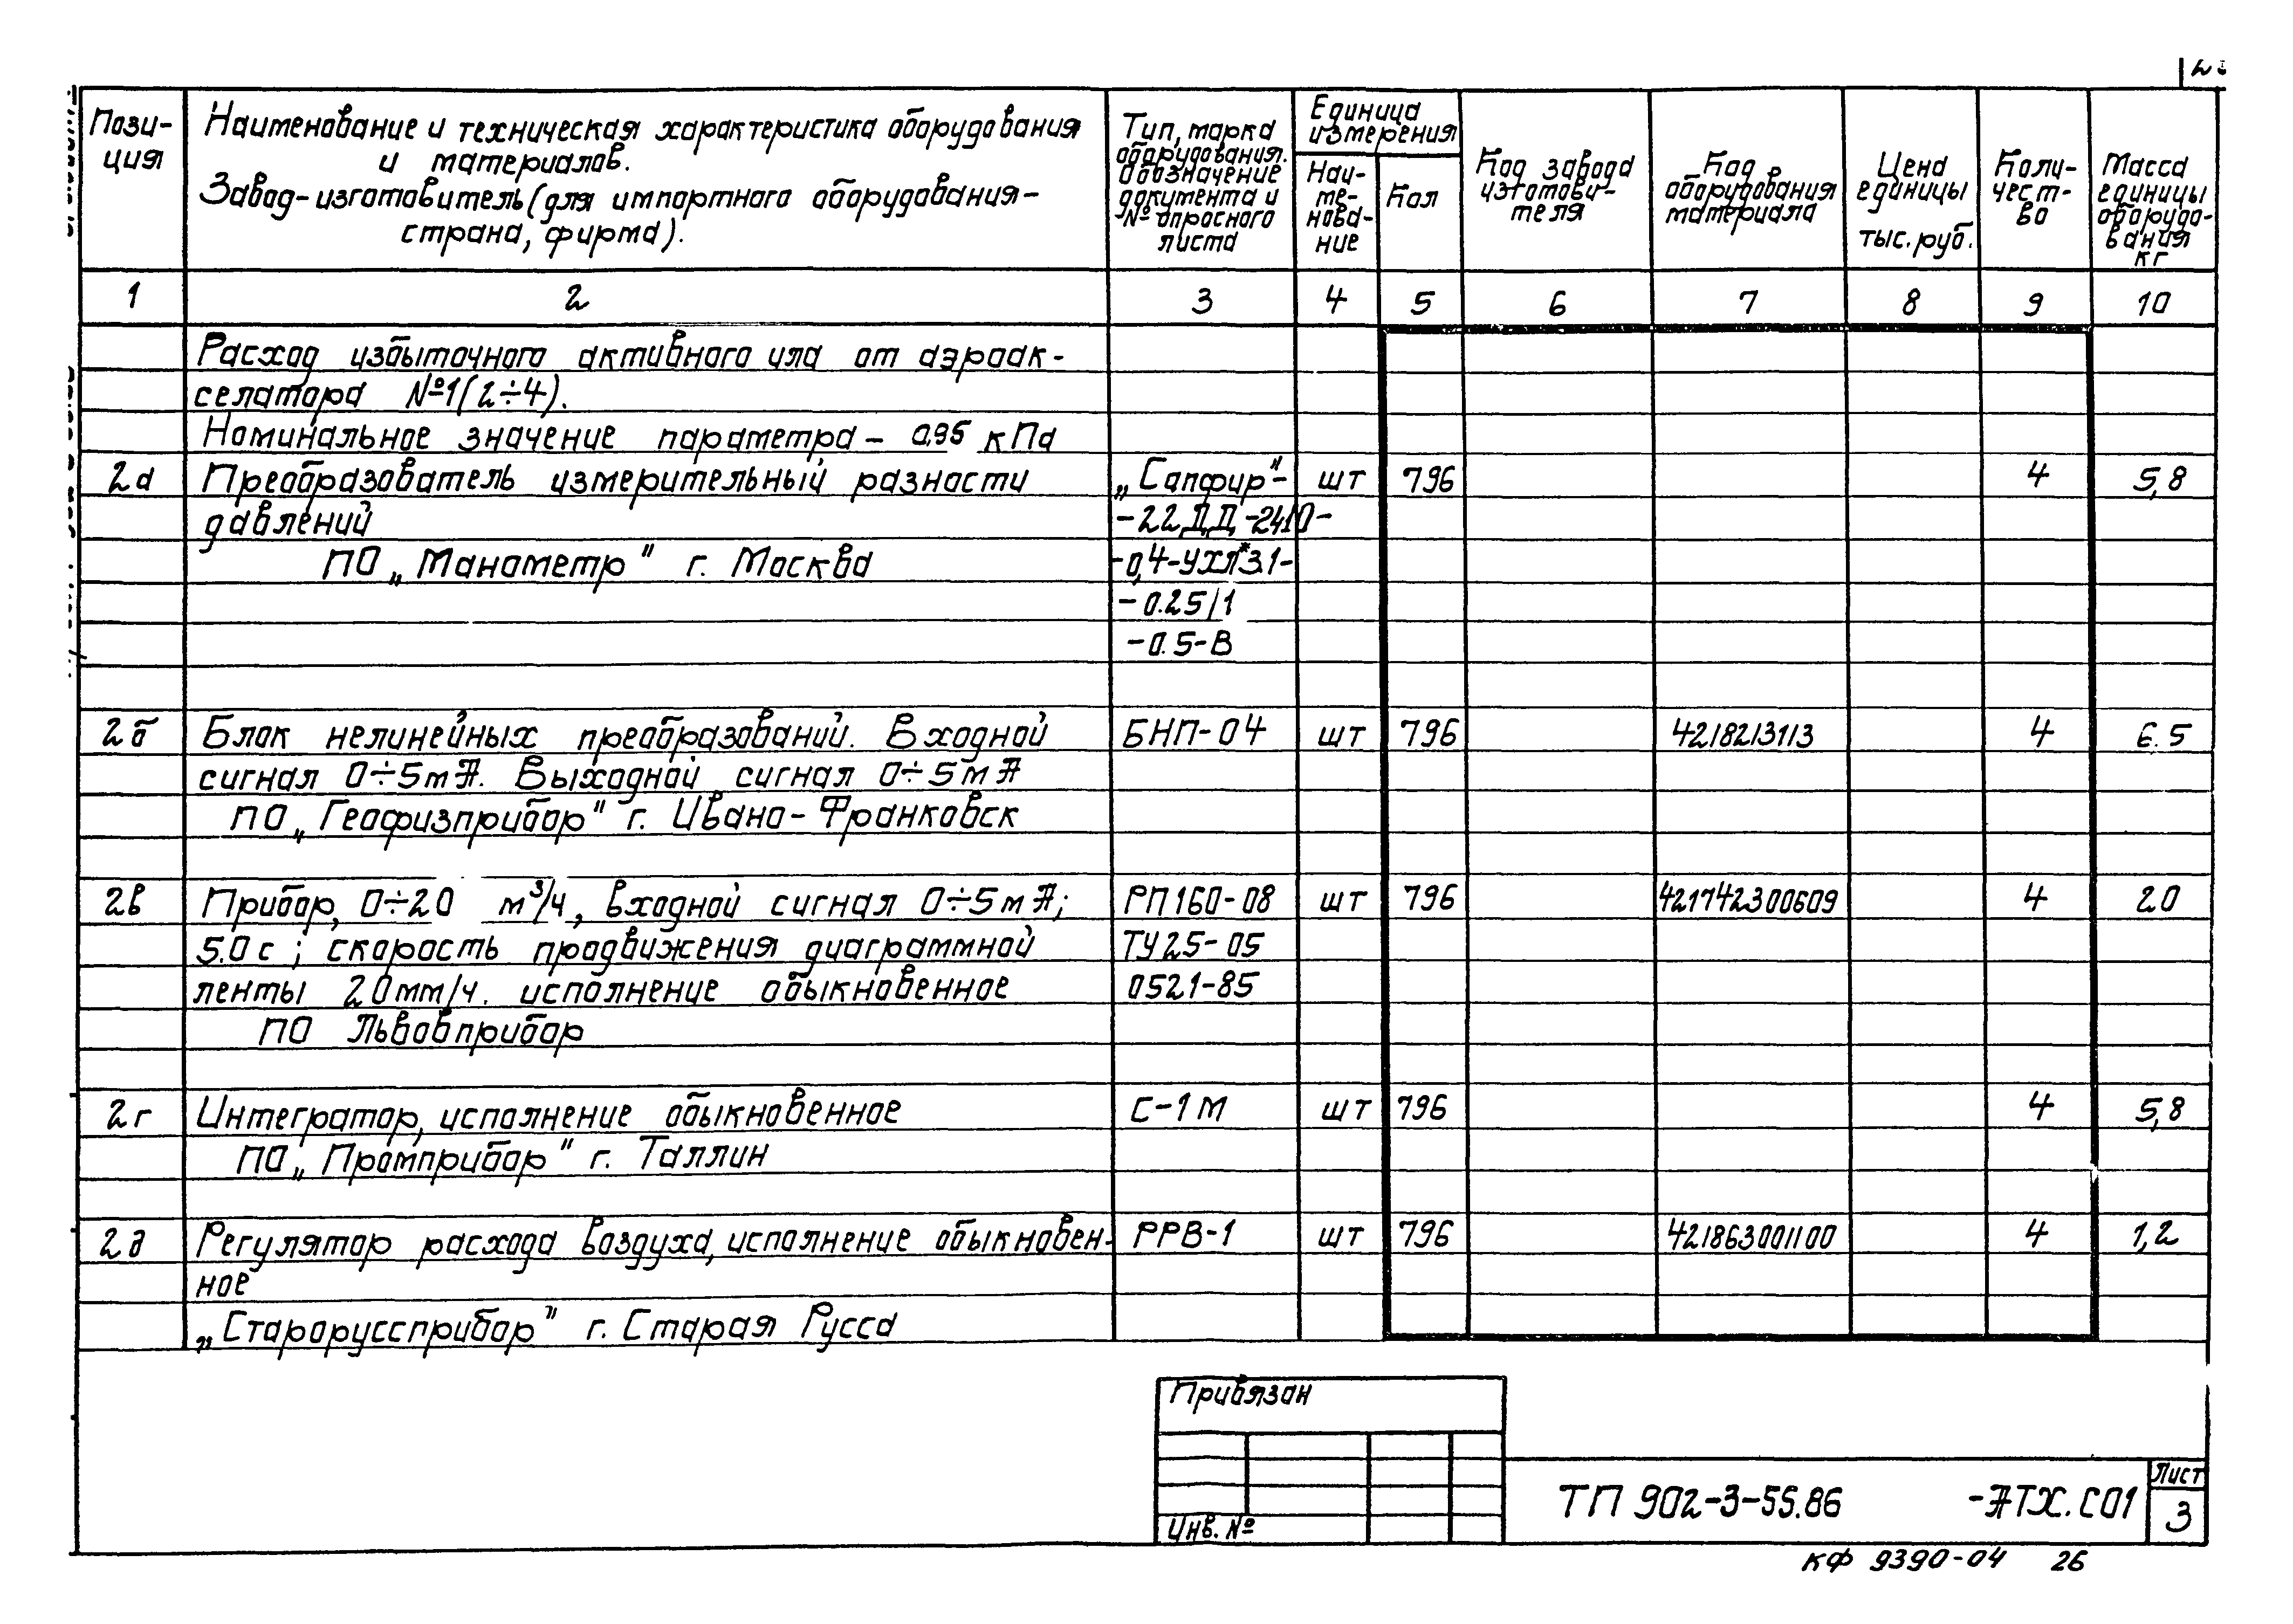 Пози-
ция
Наименование и техническая характеристика оборудования
и материалов.
Завод-изготовитель (для импортного оборудования-
страна, фирма).
Тип, марка
оборудования.
Обозначение
документа и
№ опросного
листа
Единица
измерения
Наи-
ме-
нова-
ние
Код
Код завода
изготови-
теля
Код
оборудования
материала
Цена
единицы
тыс. руб.
Коли-
чест-
во
Масса
единицы
оборудо-
вания
кг
1 2 3 4 5 6 7 8 9 10
Расход избыточного активного ила от аэроак-
селатора №1(2÷4).
Номинальное значение параметра - 0,95 кПа
2а Преобразователь измерительный разности „Сапфир"- шт 796 4 5,8
давлений -22ДД-2410-
ПО „Манометр" г. Москва -0,4-УХЛ*3.1-
-0.25/1
-0.5-В
2б Блок нелинейных преобразований. Входной БНП-04 шт 796 4218213113 4 6.5
сигнал 0÷5мА. Выходной сигнал 0÷5мА
ПО „Геофизприбор" г. Ивано-Франковск
2в Прибор, 0÷20 м³/ч, входной сигнал 0÷5мА; РП160-08 шт 796 421742300609 4 20
5.0с; скорость продвижения диаграммной ТУ25-05
ленты 20мм/ч. исполнение обыкновенное 0521-85
ПО Львовприбор
2г Интегратор, исполнение обыкновенное С-1М шт 796 4 5,8
ПО „Промприбор" г. Таллин
2д Регулятор расхода воздуха, исполнение обыкновен- РРВ-1 шт 796 421863001100 4 1,2
ное
„Старорусприбор" г. Старая Русса
Привязан
Инв. №
ТП 902-3-55.86 -АТХ.С01
Лист
3
КФ 9390-04 26